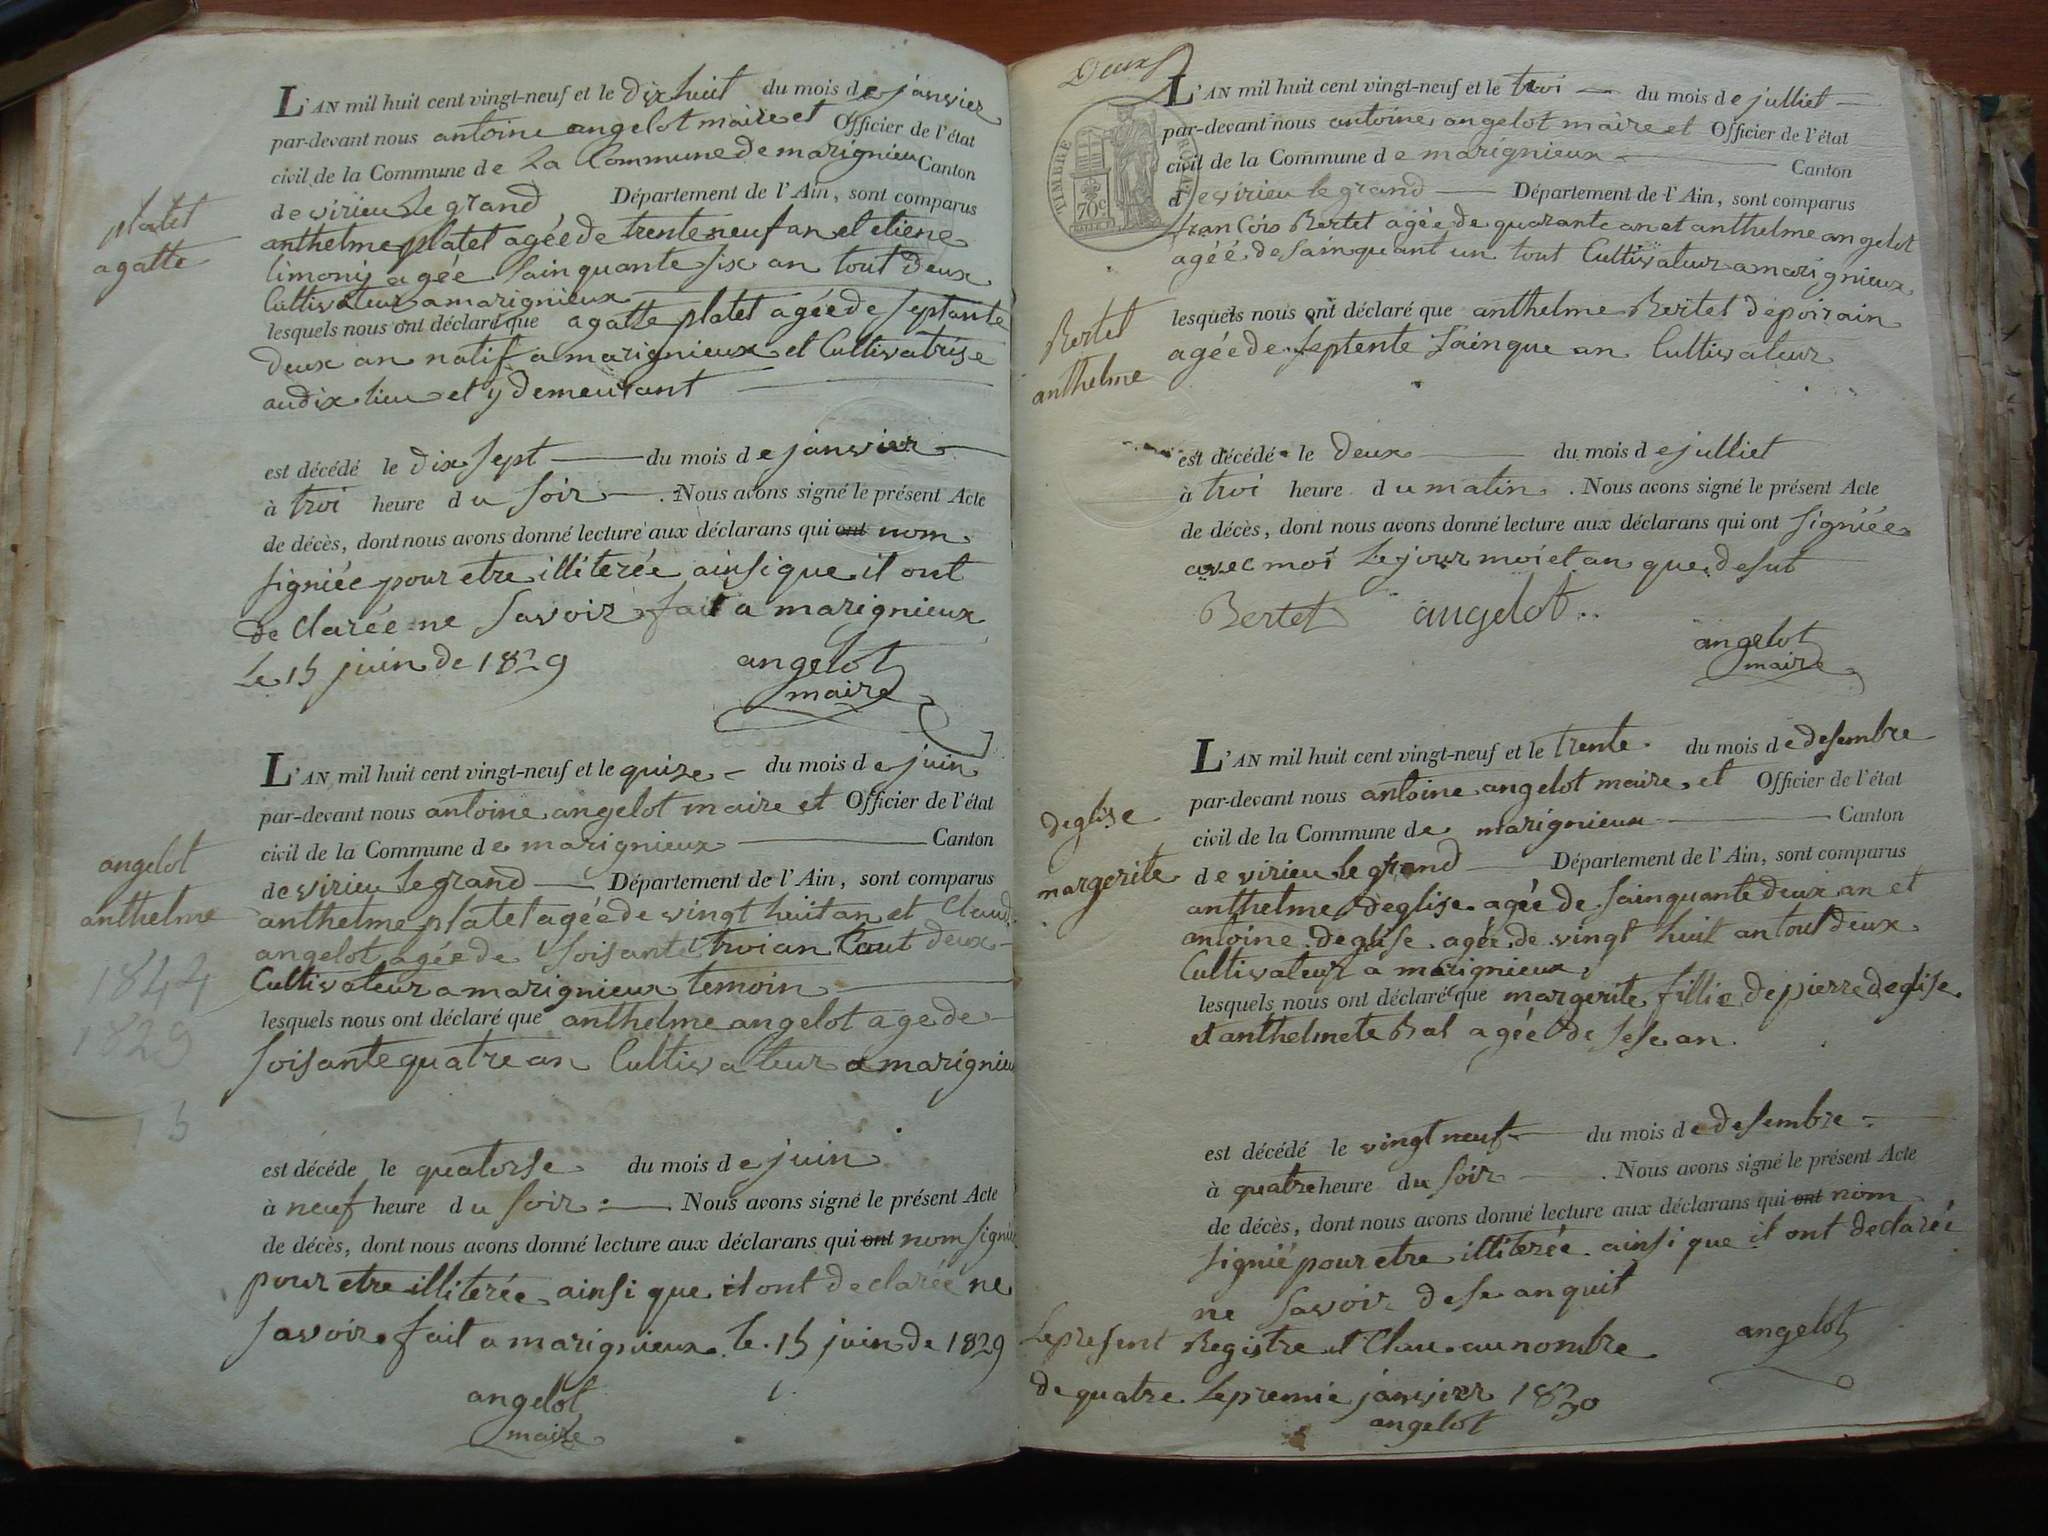 L'AN mil huit cent vingt-neuf et le dix huit du mois de janvier
par-devant nous antoine angelot maire et Officier de l'état
civil de la Commune de La Commune de marignieu Canton
de virieu le grand Département de l'Ain, sont comparus
anthelme platet agée de trente neuf an et etiene
limonij agée sainquante six an tout deux
Cultivateur a marignieux
lesquels nous ont déclaré que agatte platet agée de septante
deux an natif a marignieux et Cultivatrise
audix lieu et y demeurant
platet
agatte
est décédé le dix sept du mois de janvier
à troi heure du soir . Nous avons signé le présent Acte
de décès, dont nous avons donné lecture aux déclarans qui ont nom
signiée pour etre illiterée ainsi que il ont
de clarée ne savoir fait a marignieux
Le 15 juin de 1829 angelot
maire
L'AN mil huit cent vingt-neuf et le quise du mois de juin
par-devant nous antoine angelot maire et Officier de l'état
civil de la Commune de marignieux Canton
de virieu le grand Département de l'Ain, sont comparus
anthelme platet agée de vingt huit an et Claud
angelot agée de soisante troi an tout deux
Cultivateur a marignieux temoin
lesquels nous ont déclaré que anthelme angelot age de
soisante quatre an Cultivateur a marignieu
angelot
anthelme
1844
1829
15
est décédé le quatorse du mois de juin
à neuf heure du soir : Nous avons signé le présent Acte
de décès, dont nous avons donné lecture aux déclarans qui ont nom signié
pour etre illiterée ainsi que il ont declarée ne
savoir fait a marignieux le 15 juin de 1829
angelot
maire
Deux
TIMBRE ROYAL
70c
L'AN mil huit cent vingt-neuf et le troi du mois de julliet
par-devant nous antoine angelot maire et Officier de l'état
civil de la Commune de marignieux Canton
de virieu le grand Département de l'Ain, sont comparus
francois Bertet agée de quarante an et anthelme angelot
agéé de sainquant un tout Cultivateur a marignieux
lesquels nous ont déclaré que anthelme Bertet depoirain
agée de septente sainque an Cultivateur
Bertet
anthelme
est décédé le deux du mois de julliet
à troi heure du matin . Nous avons signé le présent Acte
de décès, dont nous avons donné lecture aux déclarans qui ont signiée
avec moi Le jour moi et an que desut
Bertet angelot
angelot
maire
L'AN mil huit cent vingt-neuf et le trente du mois de desembre
par-devant nous antoine angelot maire et Officier de l'état
civil de la Commune de marignieux Canton
de virieu le grand Département de l'Ain, sont comparus
anthelme deglise agée de sainquante deux an et
antoine deglise agée de vingt huit an tout deux
Cultivateur a marignieux
lesquels nous ont déclaré que margerite fillie de pierre deglise
et anthelmete Bal agée de sese an
deglise
margerite
est décédé le vingt neuf du mois de desembre
à quatre heure du soir . Nous avons signé le présent Acte
de décès, dont nous avons donné lecture aux déclarans qui ont nom
signié pour etre illiterée ainsi que il ont declarée
ne savoir de se an quit
angelot
Le present Registre et Clau au nombre
de quatre Le premie janvier 1830
angelot